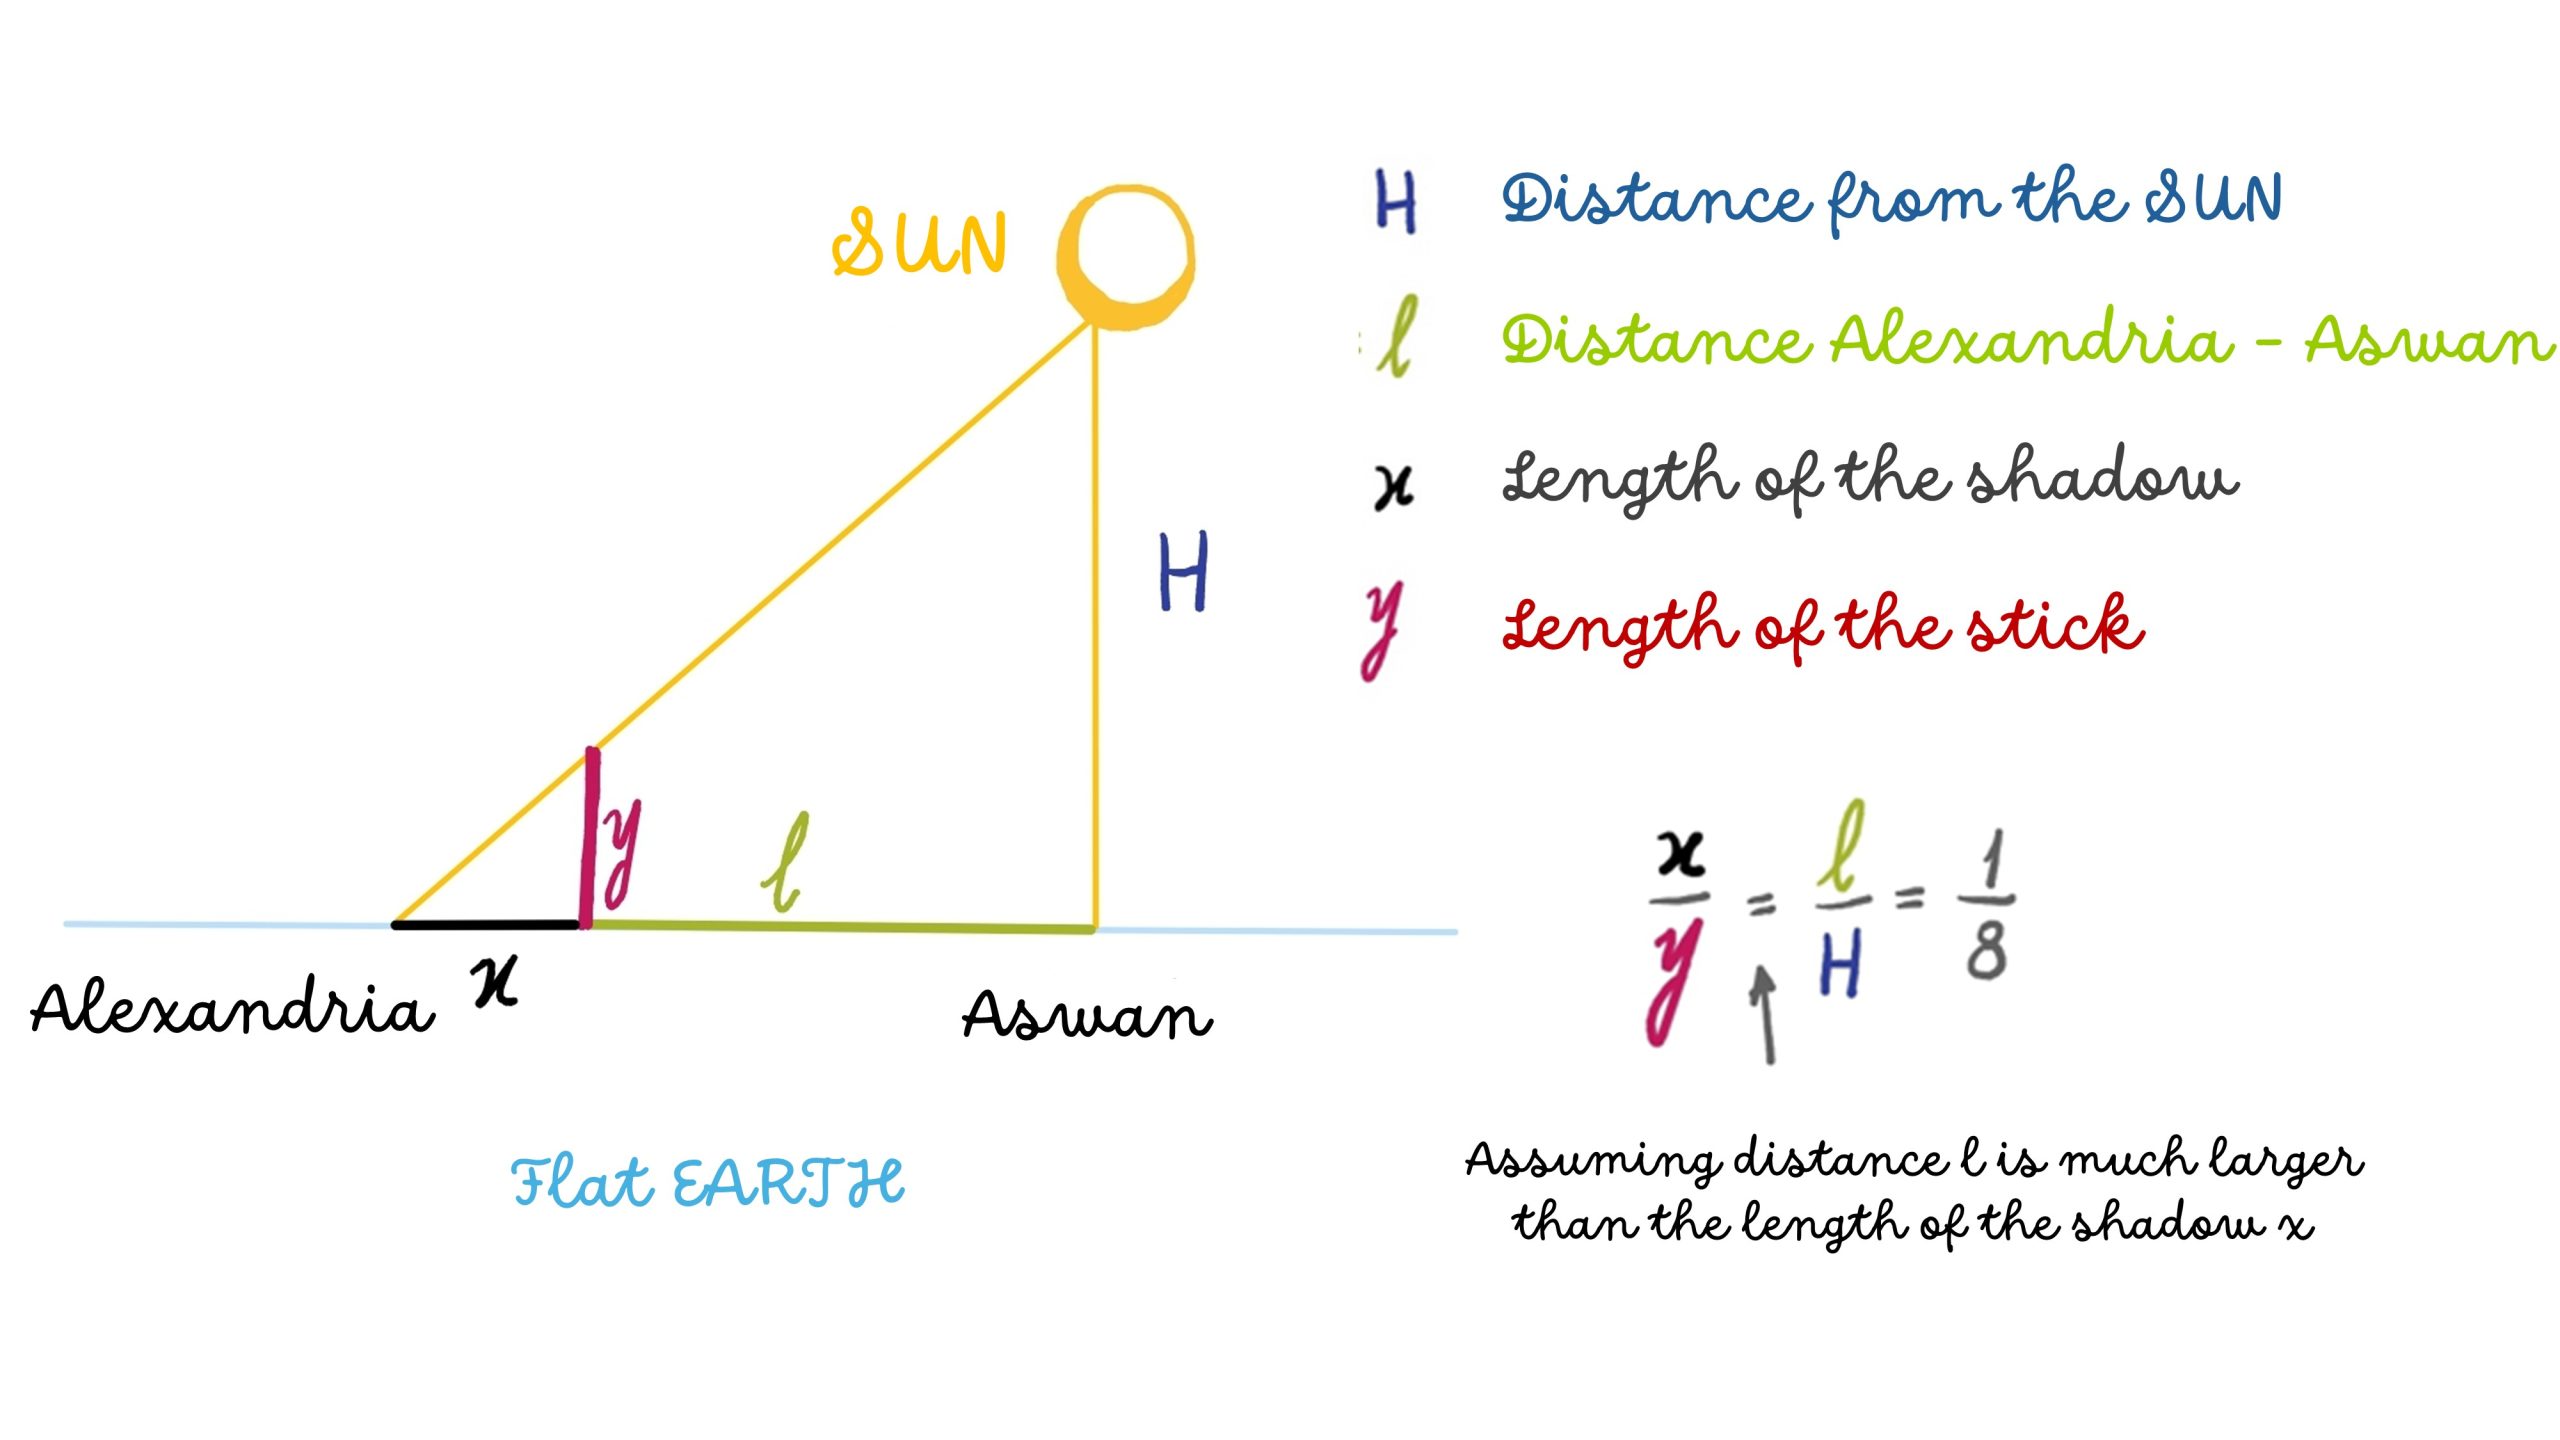 SUN
H Distance from the SUN
l Distance Alexandria - Aswan
x Length of the shadow
y Length of the stick
H
y
l
x
Alexandria
Aswan
x/y = l/H = 1/8
Flat EARTH
Assuming distance l is much larger
than the length of the shadow x